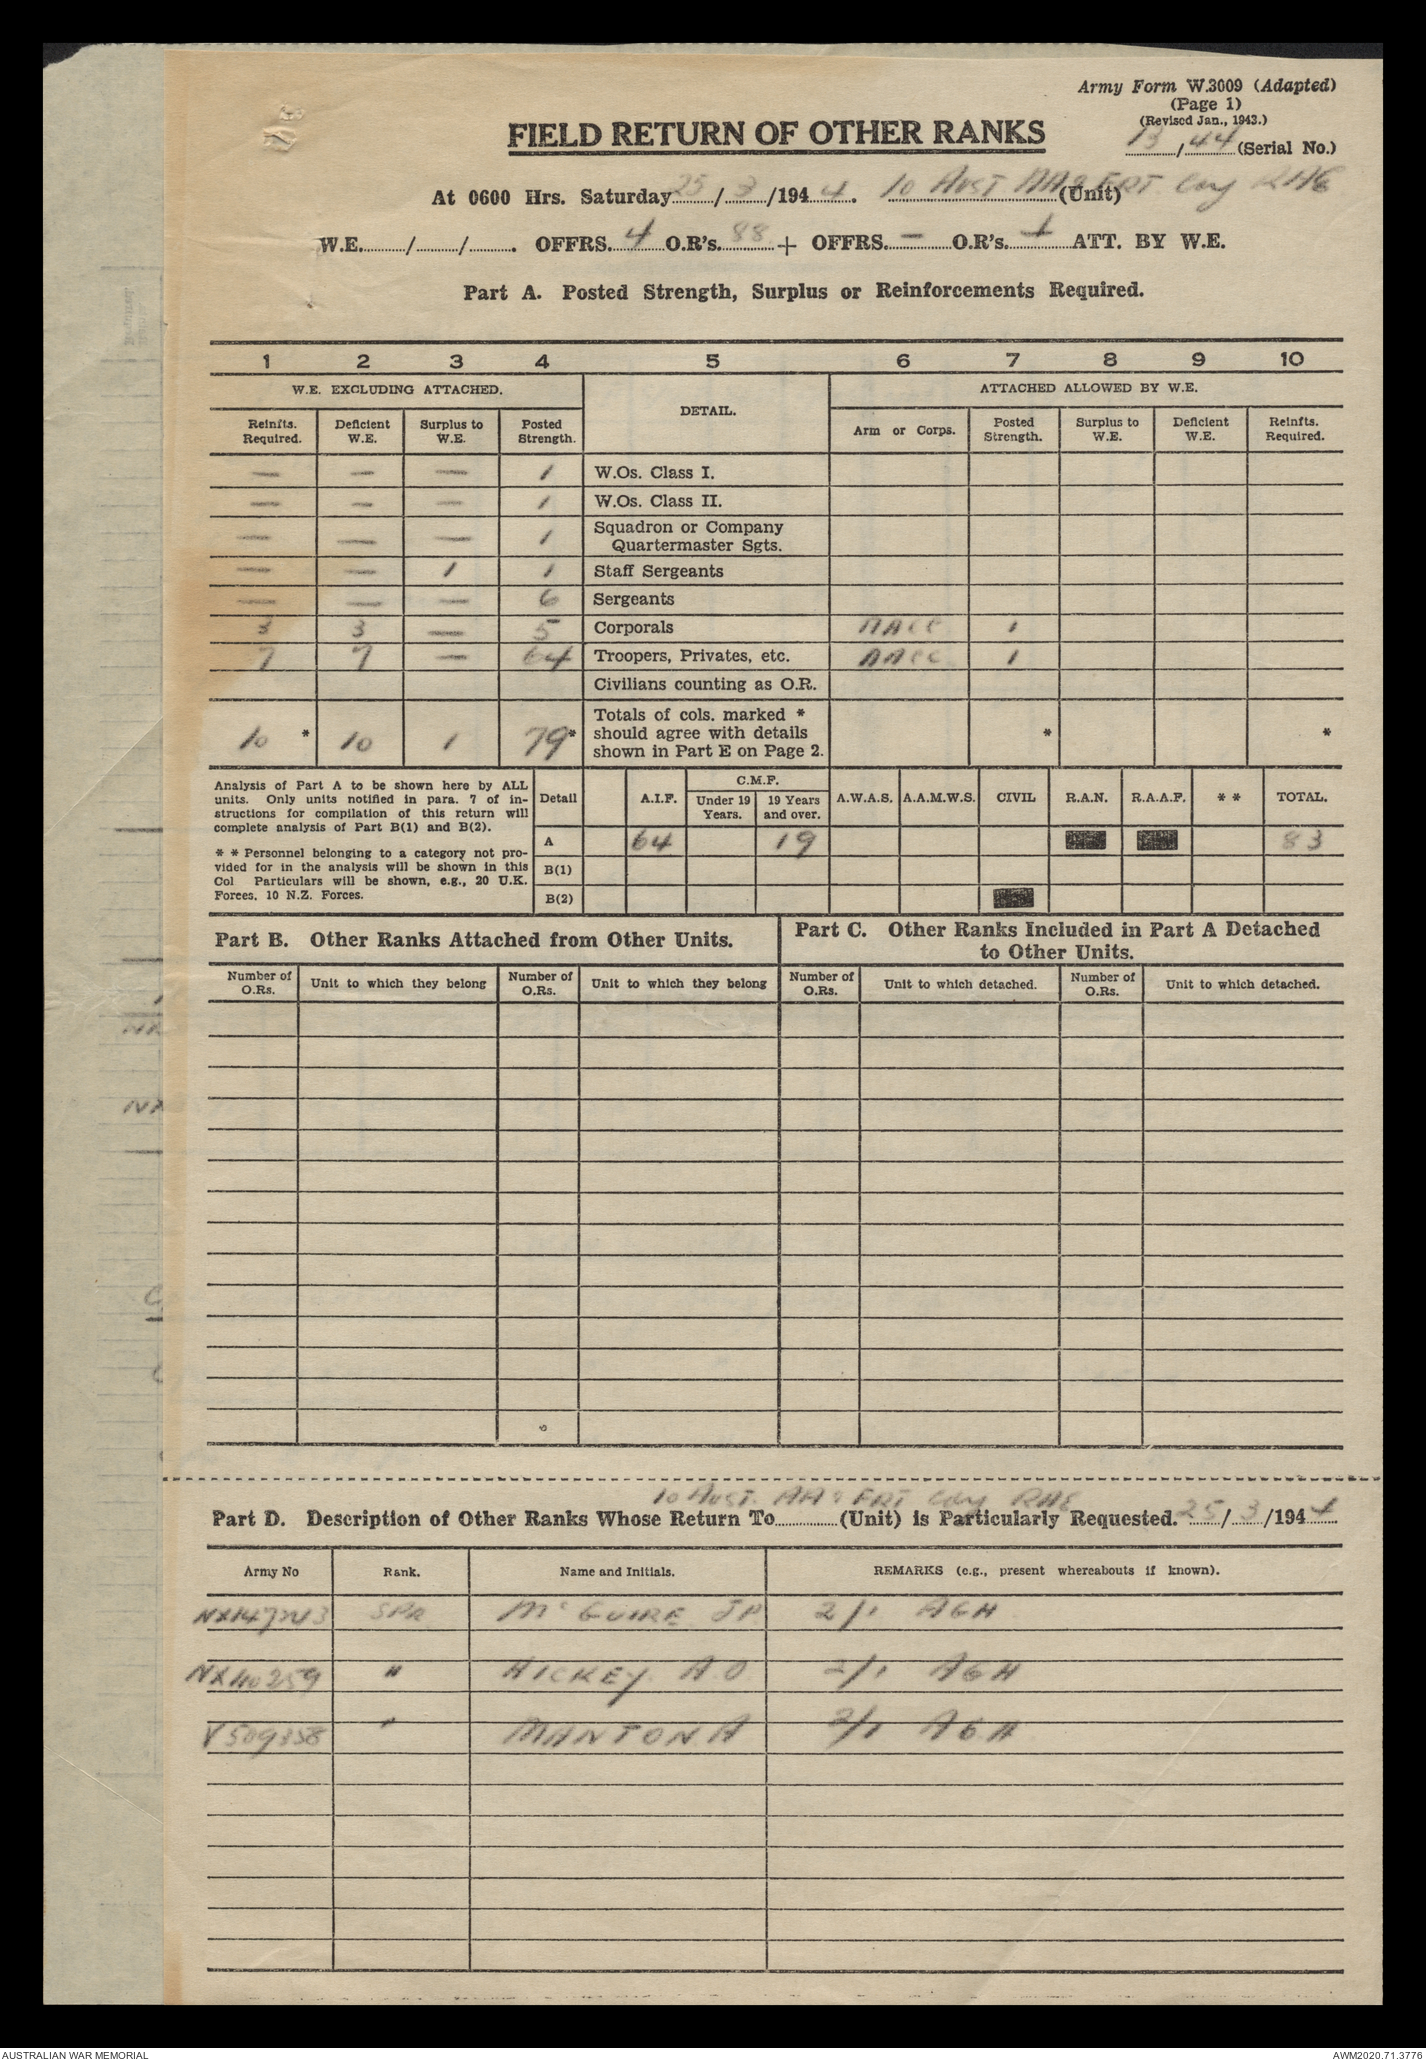 Army Form W.3009 (Adapted)
(Page 1)
(Revised Jan., 1943.)
13/44 (Serial No.)
FIELD RETURN OF OTHER RANKS
At 0600 Hrs. Saturday 25/3/1944. 10 Aust AA & FRT Coy RAE (Unit)
W.E. / / . OFFRS. 4 O.R's. 88 + OFFRS. — O.R's. 4 ATT. BY W.E.
Part A. Posted Strength, Surplus or Reinforcements Required.
1 2 3 4 5 6 7 8 9 10
W.E. EXCLUDING ATTACHED. DETAIL. ATTACHED ALLOWED BY W.E.
Reinfts. Required. Deficient W.E. Surplus to W.E. Posted Strength. Arm or Corps. Posted Strength. Surplus to W.E. Deficient W.E. Reinfts. Required.
— — — 1 W.Os. Class I.
— — — 1 W.Os. Class II.
— — — 1 Squadron or Company Quartermaster Sgts.
— — 1 1 Staff Sergeants
— — — 6 Sergeants
3 3 — 5 Corporals AACC 1
7 7 — 64 Troopers, Privates, etc. AACC 1
Civilians counting as O.R.
10 * 10 1 79 * Totals of cols. marked * should agree with details shown in Part E on Page 2. * *
Analysis of Part A to be shown here by ALL
units. Only units notified in para. 7 of in-
structions for compilation of this return will
complete analysis of Part B(1) and B(2).
* * Personnel belonging to a category not pro-
vided for in the analysis will be shown in this
Col Particulars will be shown, e.g., 20 U.K.
Forces, 10 N.Z. Forces.
C.M.F.
Detail A.I.F. Under 19 Years. 19 Years and over. A.W.A.S. A.A.M.W.S. CIVIL R.A.N. R.A.A.F. * * TOTAL.
A 64 19 83
B(1)
B(2)
Part B. Other Ranks Attached from Other Units.
Part C. Other Ranks Included in Part A Detached
to Other Units.
Number of O.Rs. Unit to which they belong Number of O.Rs. Unit to which they belong Number of O.Rs. Unit to which detached. Number of O.Rs. Unit to which detached.
10 Aust. AA & FRT Coy RAE
Part D. Description of Other Ranks Whose Return To (Unit) is Particularly Requested. 25/3/1944
Army No Rank. Name and Initials. REMARKS (e.g., present whereabouts if known).
SPR McGUIRE JP 2/1 AGH
NX110259 " HICKEY A.O. 2/1 AGH
V509358 " MANTON A 2/1 AGH
AUSTRALIAN WAR MEMORIAL
AWM2020.71.3776